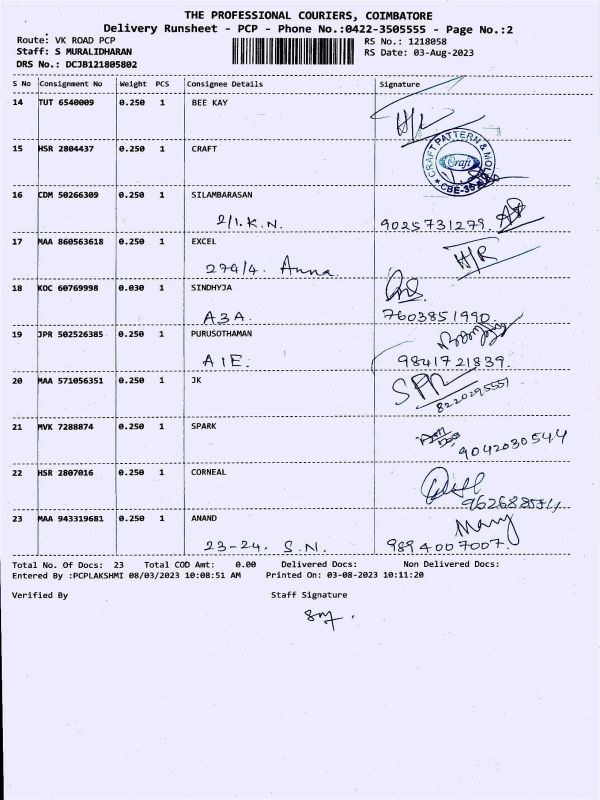 THE PROFESSIONAL COURIERS, COIMBATORE
Delivery Runsheet - PCP - Phone No.:0422-3505555 - Page No.:2
Route: VK ROAD PCP RS No.: 1218058
Staff: S MURALIDHARAN RS Date: 03-Aug-2023
DRS No.: DCJB121805802
S No Consignment No Weight PCS Consignee Details Signature
14 TUT 6540009 0.250 1 BEE KAY
H/R
15 HSR 2804437 0.250 1 CRAFT
CRAFT PATTERN & MOULD Craft CBE-35
16 CDM 50266309 0.250 1 SILAMBARASAN
2/1.K.N. 9025731279.
17 MAA 860563618 0.250 1 EXCEL
H/R
279/4. Anna.
18 KOC 60769998 0.030 1 SINDHYJA
A3A. 7603851990.
19 JPR 502526385 0.250 1 PURUSOTHAMAN
A1E. 9841721839.
20 MAA 571056351 0.250 1 JK
8220295557
21 MVK 7288874 0.250 1 SPARK
9042030544
22 HSR 2807016 0.250 1 CORNEAL
23 MAA 943319681 0.250 1 ANAND
Mary
23-24. S.N. 9894007007.
Total No. Of Docs: 23 Total COD Amt: 0.00 Delivered Docs: Non Delivered Docs:
Entered By :PCPLAKSHMI 08/03/2023 10:08:51 AM Printed On: 03-08-2023 10:11:20
Verified By Staff Signature